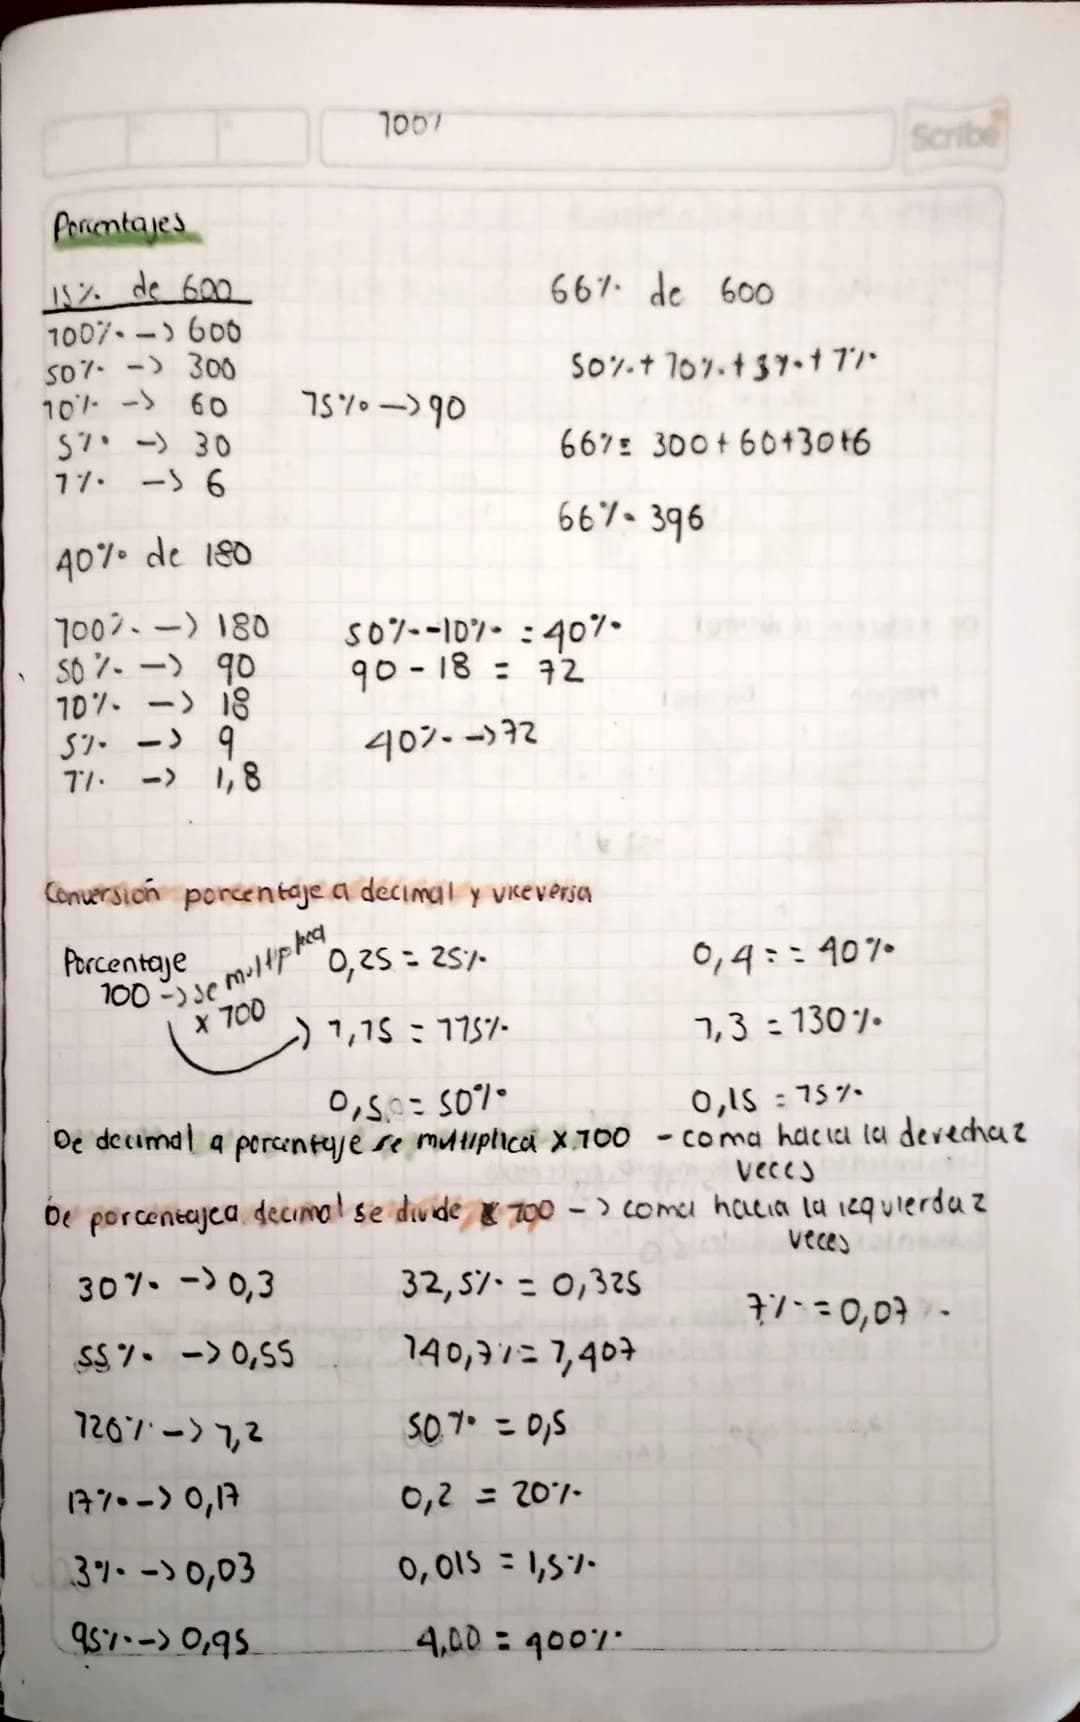 100%
Scribe
Porcentajes
15% de 600
100% -> 600
50% -> 300
10% -> 60
5% -> 30
1% -> 6
15% -> 90
66% de 600
50% + 10% + 5% + 1%
66% = 300 + 60 + 30 + 6
66% = 396
40% de 180
100% -> 180
50% -> 90
10% -> 18
5% -> 9
1% -> 1,8
50% - 10% = 40%
90 - 18 = 72
40% -> 72
Conversión porcentaje a decimal y viceversa
Porcentaje
100 -> se multiplica
x 100
0,25 = 25%
1,75 = 175%
0,50 = 50%
0,4 = = 40%
1,3 = 130%
0,15 = 15%
De decimal a porcentaje se multiplica x 100 - coma hacia la derecha 2
veces
De porcentaje a decimal se divide 100 -> coma hacia la izquierda 2
veces
30% -> 0,3
55% -> 0,55
120% -> 1,2
17% -> 0,17
3% -> 0,03
95% -> 0,95
32,5% = 0,325
140,7% = 1,407
50% = 0,5
0,2 = 20%
0,015 = 1,5%
4,00 = 400%
7% = 0,07